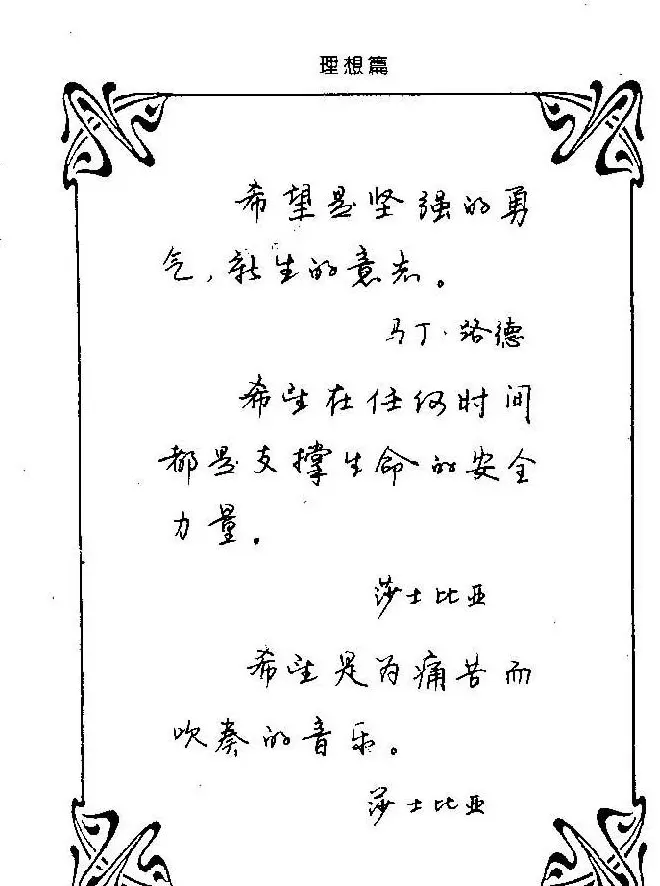 理想篇
希望是坚强的勇
气，新生的意志。
马丁·路德
希望在任何时间
都是支撑生命的安全
力量。
莎士比亚
希望是为痛苦而
吹奏的音乐。
莎士比亚